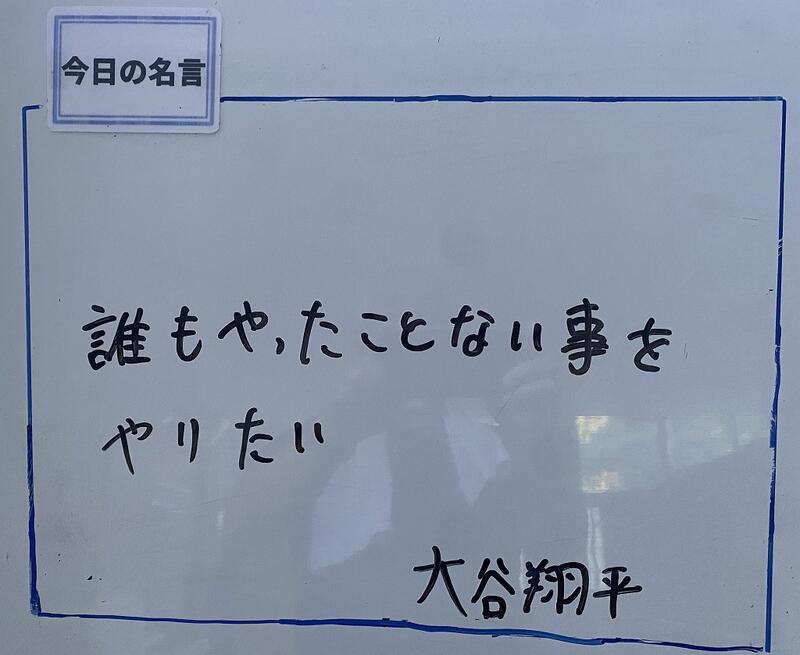 今日の名言
誰もやったことない事を
やりたい
大谷翔平